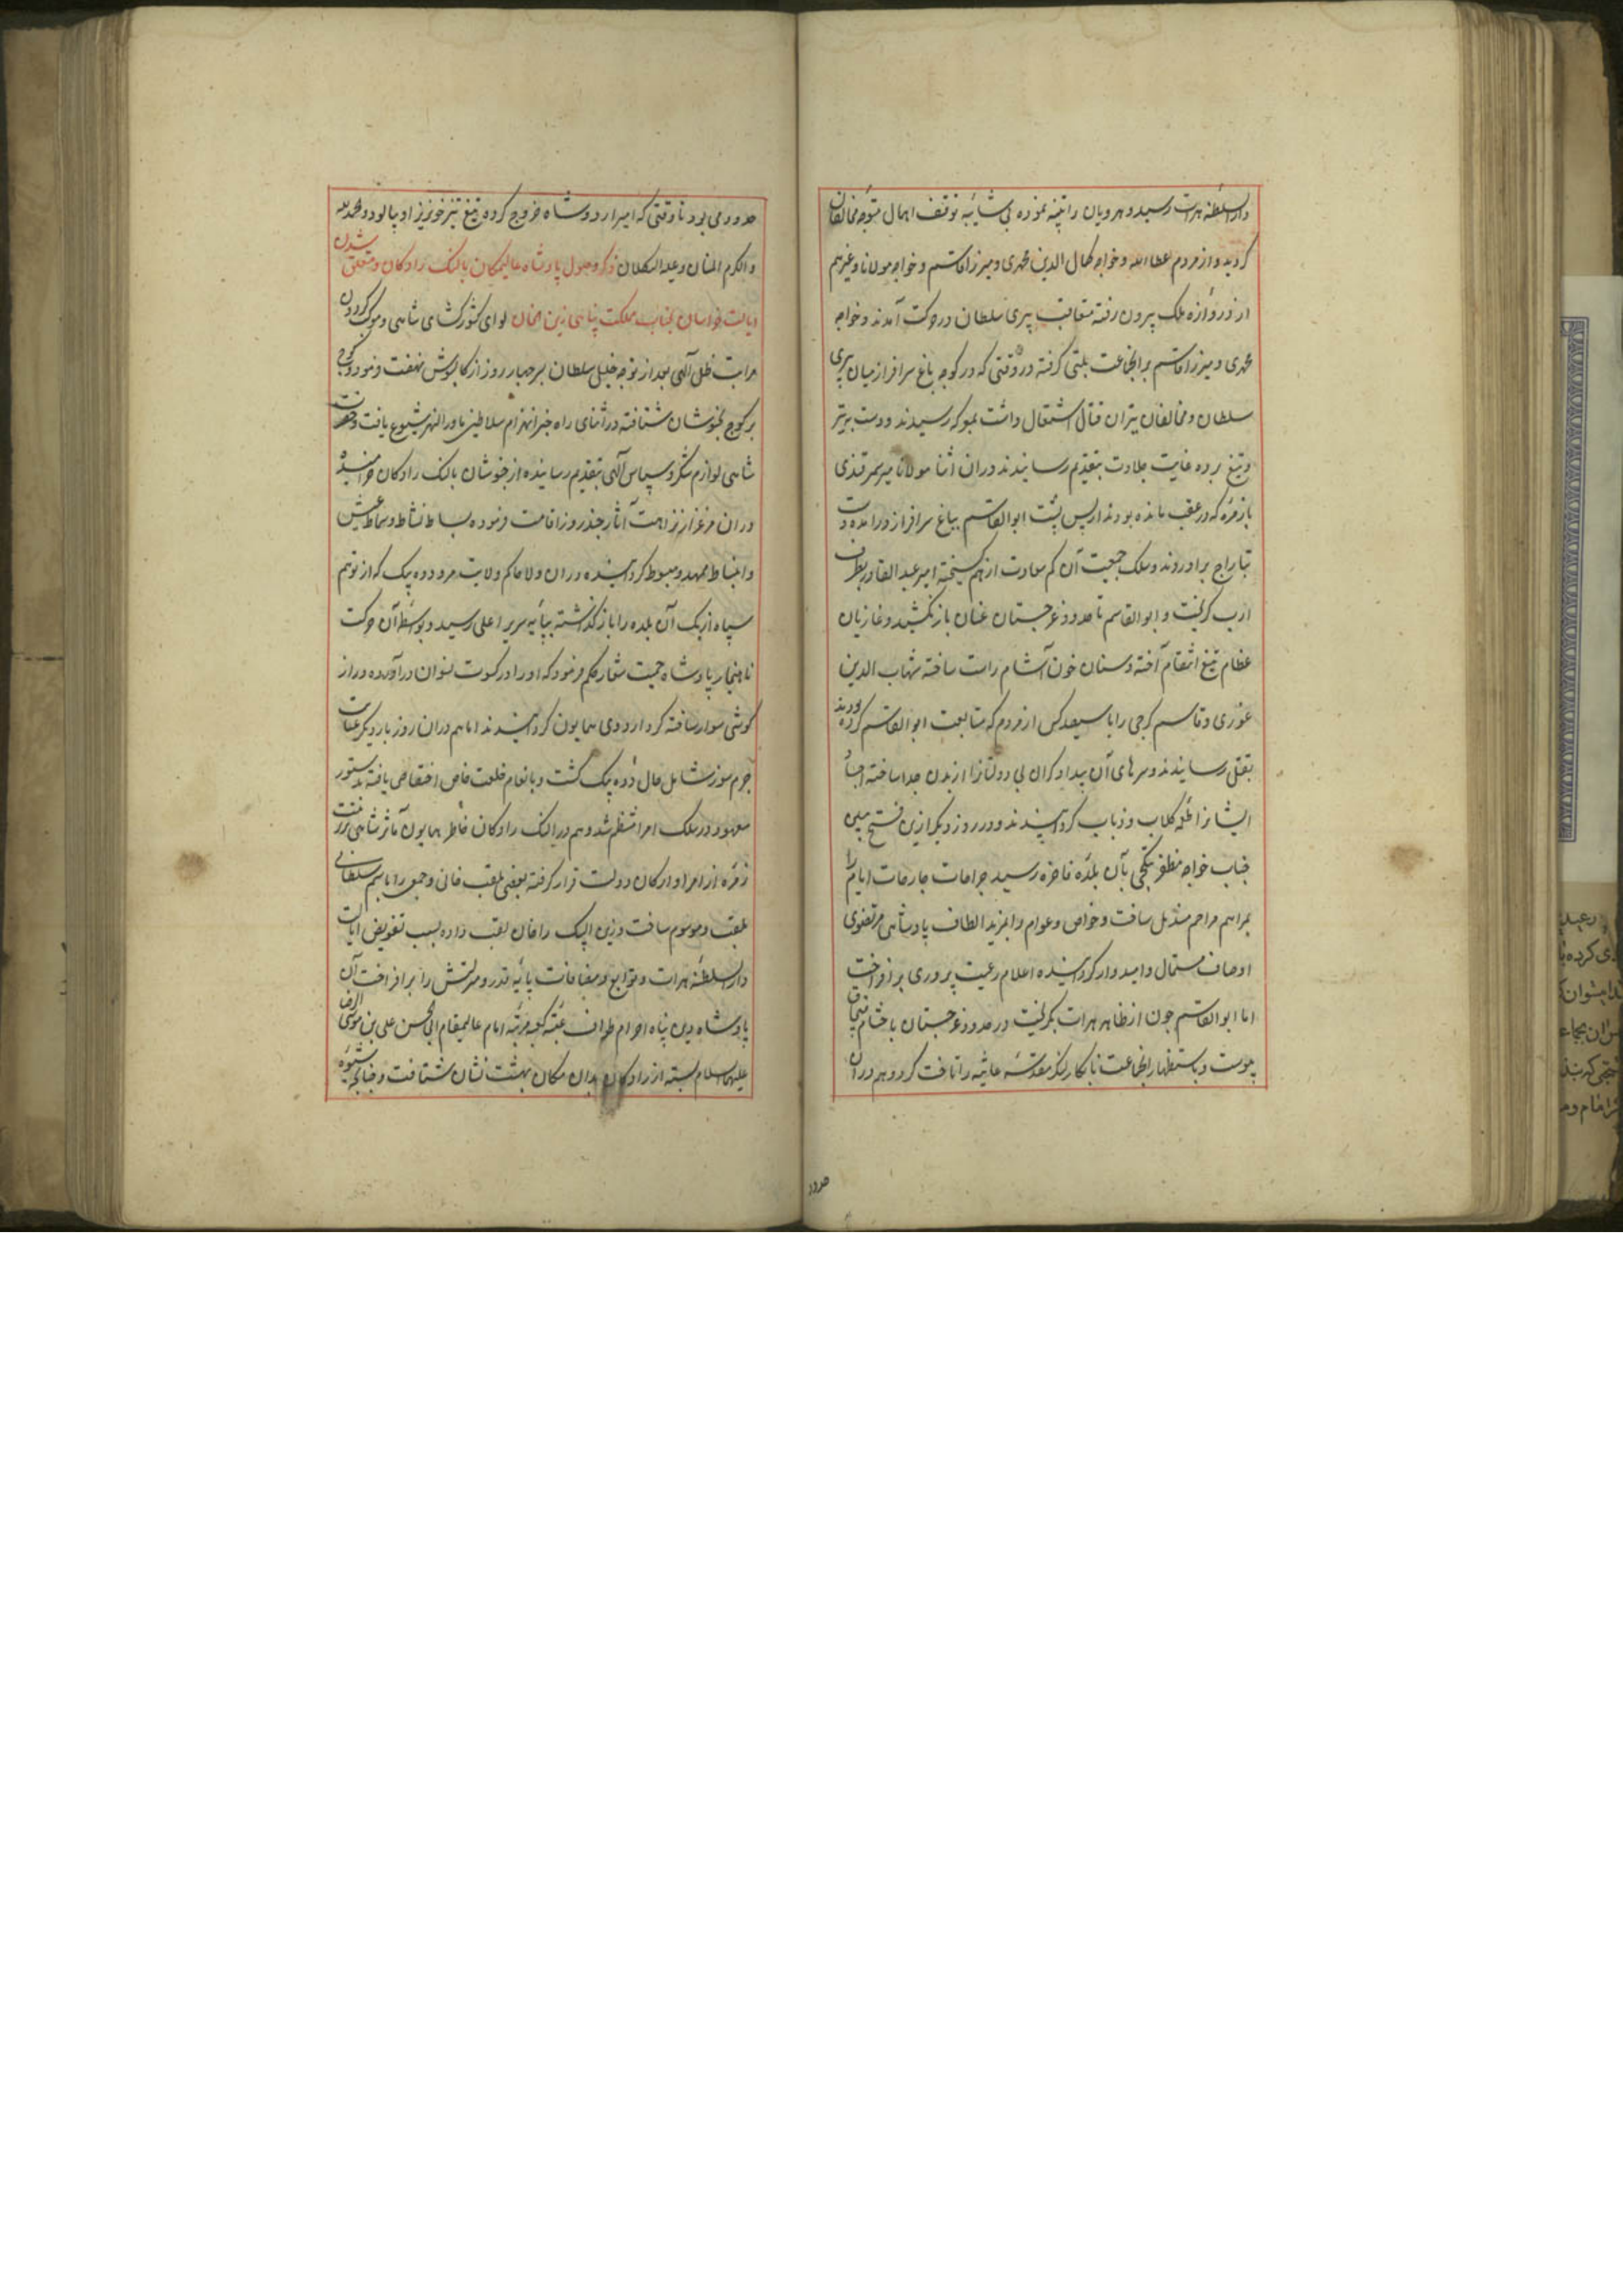 دارالسلطنه هرات رسید و هرویان را تنبیه نموده بی شایبه توقف اهمال متوجه مخالفان
کردید و از مردم عطاءالله و خواجه کمال الدین محمدی و میرزا قاسم و خواجه مولانا و غیرهم
از دروازه ملک بیرون رفته متعاقب پیری سلطان در حرکت آمدند و خواجه
محمدی و میرزا قاسم بر انجماعت بلتی کرفته در وقتی که در کوچه باغ سرافراز میان پیری
سلطان و مخالفان نیران قتال اشتعال داشت بمعرکه رسیدند و دست به تیر
و تیغ برده غایت جلادت بتقدیم رسانیدند در ان اثنا مولانا میر سمرقندی
با زمره که در عقب مانده بودند از پس پشت ابوالقاسم بباغ سرافراز درامده دست
بتاراج براوردند و سلک جمعیت آن کم سعادت از هم کسیخته امیر عبدالقادر بطرف
ادب کریخت و ابوالقاسم تا حدود غرجستان عنان باز نکشید و غازیان
عظام تیغ انتقام آخته و سنان خون آشام راست ساخته شهاب الدین
غوری و قاسم کرجی را با سیصد کس از مردم که متابعت ابوالقاسم کرده بودند
بقتل رسانیدند و سرهای آن بیدادکران بی دولت را از بدن جدا ساخته اجساد
ایشانرا طعمه کلاب و ذباب کردانیدند و در روز دیکر ازین فتح مبین
جناب خواجه مظفر بتکچی بآن بلده فاخره رسید جراحات جارحات ایام را
بمراهم مراحم مندمل ساخت و خواص و عوام را بمزید الطاف پادشاهی مرتضوی
اوصاف مستمال و امیدوار کردانیده اعلام رعیت پروری برافراخت
اما ابوالقاسم چون از ظاهر هرات بکریخت در حدود غرجستان باحشام قبچاق
پیوست و باستظهار انجماعت نابکار لنکر مقدسه عالیه را تاخت کرد و هم در ان
حدود
حدود می بود تا وقتی که امیر اردوشاه خروج کرده تیغ تیز خونریز او بپالود و الحمد لله
و الکرم المنان و علیه التکلان ذکر وصول پادشاه عالیمکان بالنک رادکان و متعلق شدن
ایالت خراسان بجناب مملکت پناهی زین خان لوای کشورکشای شاهی و موکب کردون
مراتب ظل الهی بعد از توجه خلیل سلطان بر چهار روز از کالپوش نهضت فرمود و کوچ
بر کوچ بخبوشان شتافته در اثنای راه خبر انهزام سلاطین ماوراالنهر شیوع یافت و حضرت
شاهی لوازم شکر و سپاس آلهی بتقدیم رسانیده از خبوشان بالنک رادکان خرامیده
در ان مرغزار نزاهت آثار چند روز اقامت فرموده بساط نشاط و سماط عیش
و انبساط ممهد و مبسوط کردانیده در ان ولا حاکم ولایت مرو دده بیک که از توهم
سپاه ازبک آن بلده را باز کذاشته بپایه سریر اعلی رسید و بواسطه آن حرکت
ناهنجار پادشاه حمیت شعار حکم فرمود که او را در کسوت نسوان دراورده دراز
کوشی سوار ساخته کرد اردوی همایون کردانیدند اما هم در ان روز بار دیکر عنایت
جرم سوز شامل حال دده بیک کشت و بانعام خلعت خاص اختصاص یافته بدستور
معهود در سلک امرا منتظم شد و هم در النک رادکان خاطر همایون مآثر شاهی بر تربیت
زمره از امرا و ارکان دولت قرار کرفته بعضی بلقب خانی و جمعی را باسم سلطانی
ملقب و موسوم ساخت و زین البیک را خان لقب داده بسبب تفویض ایالت
دارالسلطنه هرات و توابع و مضافات پایه قدر و منزلتش را برافراخت آن
پادشاه دین پناه احرام طواف عتبه کعبه مرتبه امام عالیمقام ابی الحسن علی بن موسی الرضا
علیهما السلام بسته از رادکان بدان مکان بهشت نشان شتافت و چنانچه شیوه